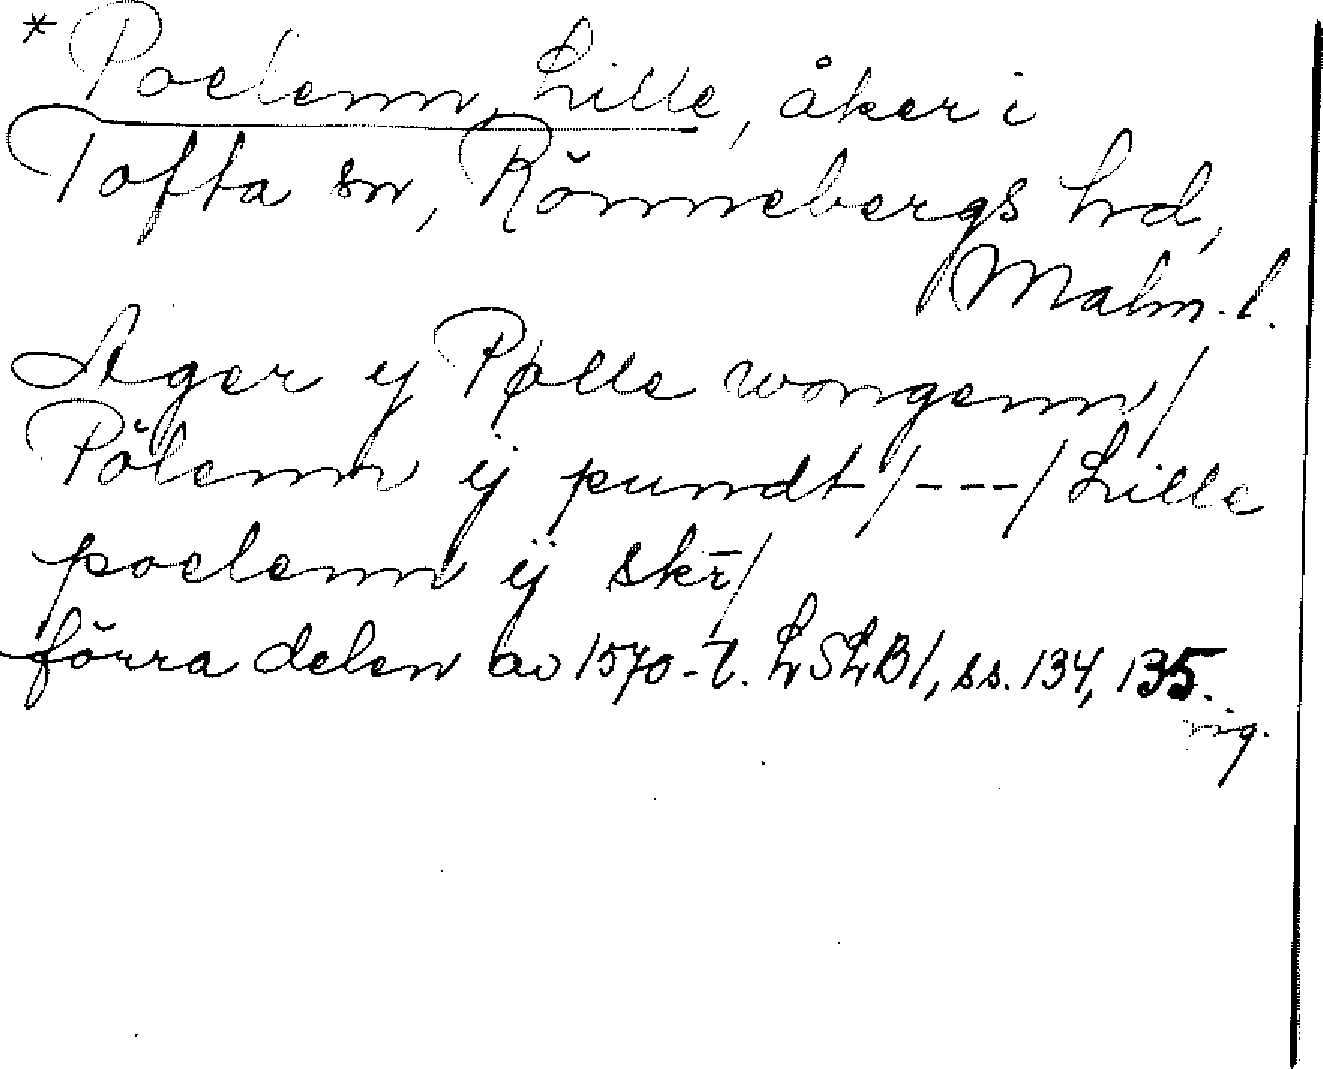 * Poelenn, Lille, åker i
Tofta sn, Rönnebergs hd,
Malm. l.
Ager ij Pølle wongenn/
Pölenn ij pundt/---/Lille
poelenn ij skr̄/
förra delen av 1570-t. LSLB1, ss. 134, 135.